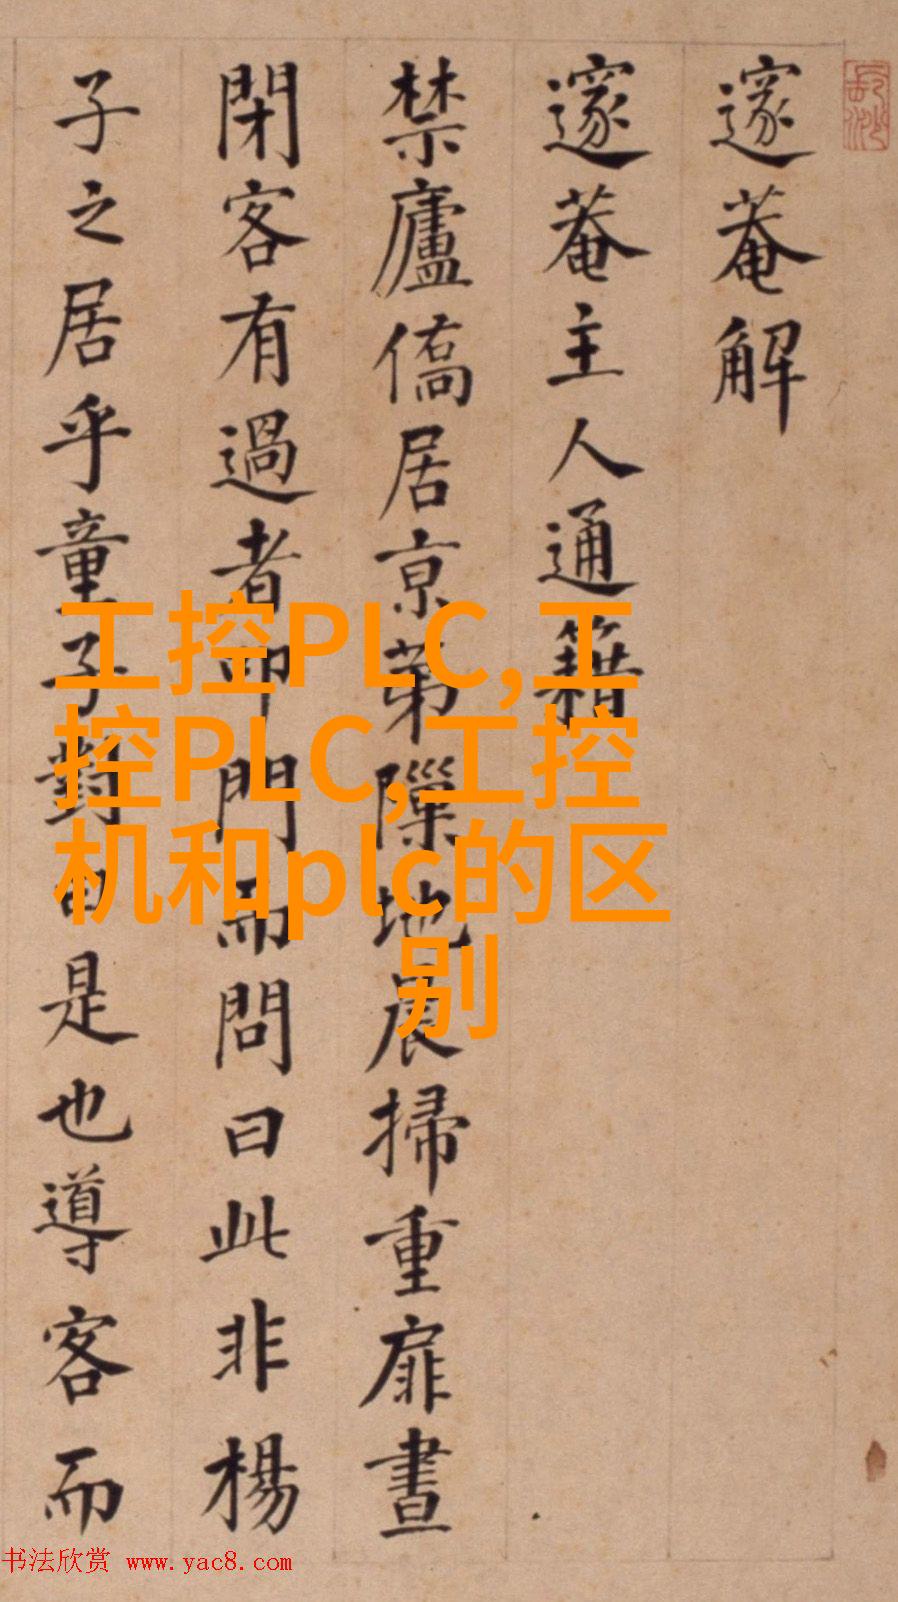 邃菴解
邃菴主人通籍
禁廬僑居京第隟地晨掃重扉晝
閉客有過者叩門而問曰此非楊
子之居乎童子對曰是也導客而
工控PLC,工
控PLC,工控
机和plc的区
别
书法欣赏 www.yac8.com